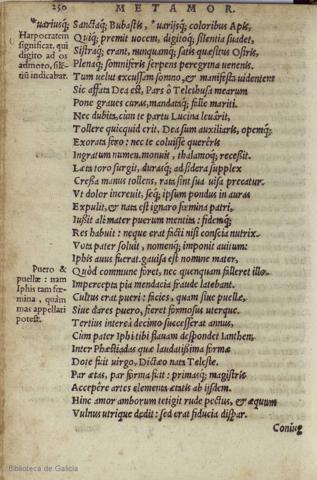 250 METAMOR.
*uariusq; Sanctaq; Bubastis, *uarijsq; coloribus Apis,
Quiq; premit uocem, digitoq; silentia suadet,
Sistraq; erant, nunquamq; satis quæsitus Osiris,
Plenaq; somniferis serpens peregrina uenenis.
Tum uelut excussam somno, & manifesta uidentem
Sic affata Dea est, Pars ô Telethusa mearum
Pone graues curas, mandatq; falle mariti.
Nec dubita, cum te partu Lucina leuârit,
Tollere quicquid erit. Dea sum auxiliaris, opemq;
Exorata fero: nec te coluisse querêris
Ingratum numen. monuit, thalamoq; recessit.
Læta toro surgit, durasq; ad sidera supplex
Cressa manus tollens, rata sint sua uisa precatur.
Vt dolor increuit, seq; ipsum pondus in auras
Expulit, & nata est ignaro fœmina patri,
Iußit ali mater puerum mentita: fidemq;
Res habuit: neque erat ficti nisi conscia nutrix.
Vota pater soluit, nomenq; imponit auitum:
Iphis auus fuerat. gauisa est nomine mater,
Quòd commune foret, nec quenquam falleret illo.
Impercepta pia mendacia fraude latebant.
Cultus erat pueri: facies, quam siue puellæ,
Siue dares puero, fieret formosus uterque.
Tertius intereà decimo successerat annus,
Cùm pater Iphi tibi flauam despondet Ianthen,
Inter Phæstiadas quæ laudatißima formæ
Dote fuit uirgo, Dictæo nata Teleste.
Par ætas, par forma fuit: primasq; magistris
Accepêre artes elementa ætatis ab ijsdem.
Hinc amor amborum tetigit rude pectus, & æquum
Vulnus utrique dedit: sed erat fiducia dispar.
Coniug
Harpocratem
significat. qui
digito ad os
admoto, silẽ-
tiũ indicabat.
Puero &
puellæ: nam
Iphis tam fœ-
mina, quàm
mas appellari
potest.
Biblioteca de Galicia